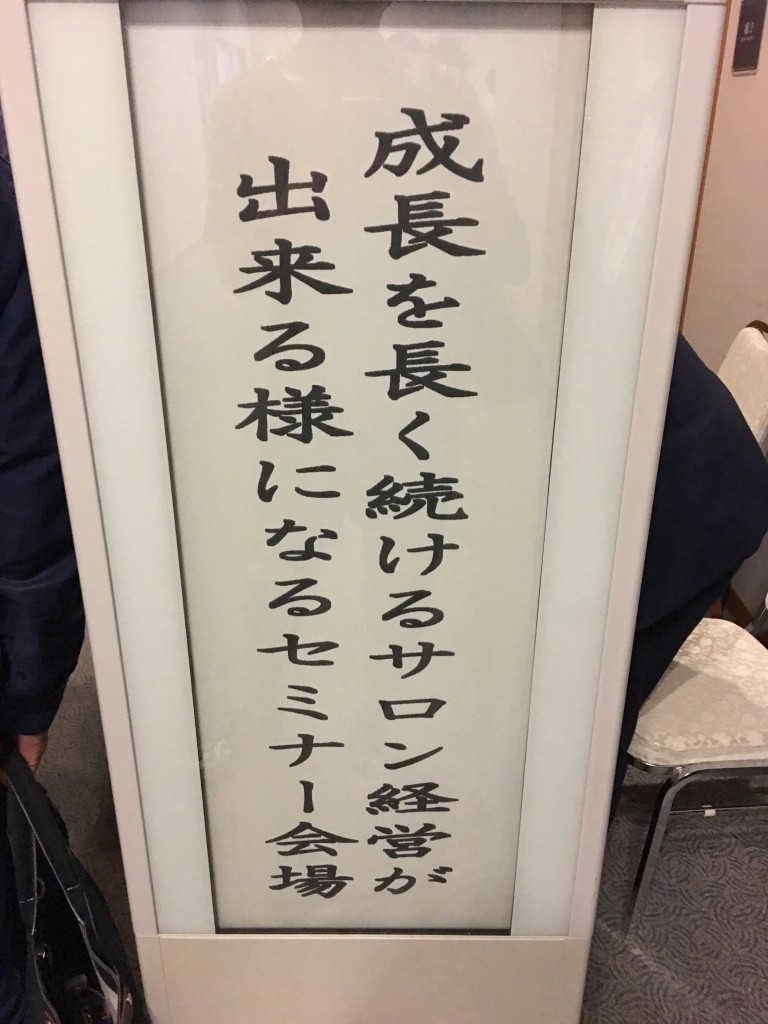 成長を長く続けるサロン経営が
出来る様になるセミナー会場